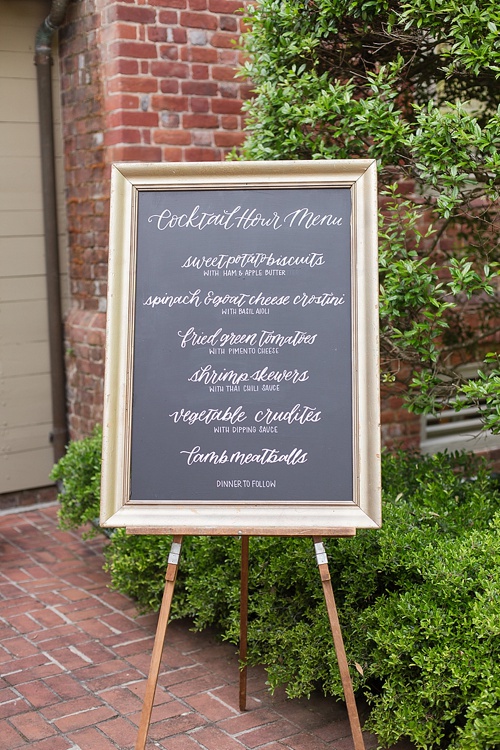 Cocktail Hour Menu
sweet potato biscuits
WITH HAM & APPLE BUTTER
spinach & goat cheese crostini
WITH BASIL AIOLI
fried green tomatoes
WITH PIMENTO CHEESE
shrimp skewers
WITH THAI CHILI SAUCE
vegetable crudités
WITH DIPPING SAUCE
lamb meatballs
DINNER TO FOLLOW